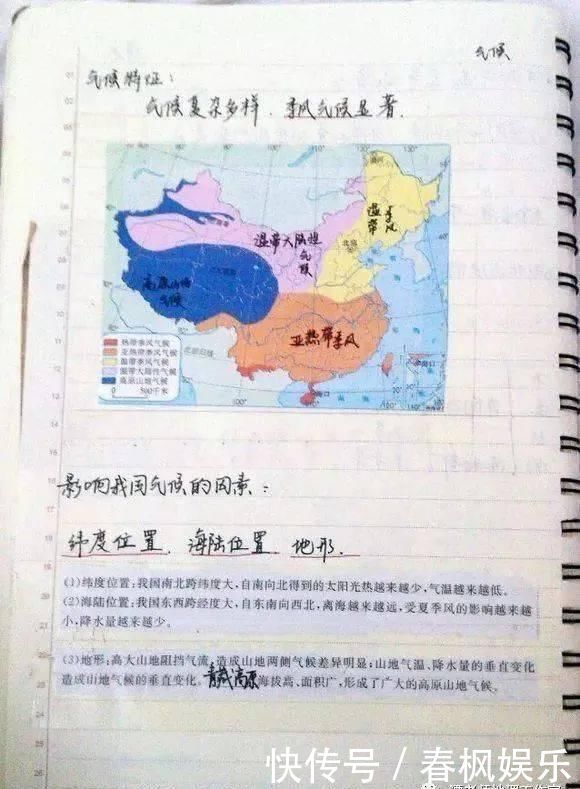 气候
气候特征：
气候复杂多样、季风气候显著.
温带季风
北京
温带大陆性
气候
高原山地
气候
亚热带季风
北回归线
热带季风气候
亚热带季风气候
温带季风气候
温带大陆性气候
高原山地气候
0 500千米
海口
100° 110° 120°
影响我国气候的因素：
纬度位置、海陆位置、地形.
(1)纬度位置:我国南北跨纬度大,自南向北得到的太阳光热越来越少,气温越来越低。
(2)海陆位置:我国东西跨经度大,自东南向西北,离海越来越远,受夏季风的影响越来越
小,降水量越来越少。
(3)地形:高大山地阻挡气流,造成山地两侧气候差异明显;山地气温、降水量的垂直变化
造成山地气候的垂直变化。青藏高原海拔高、面积广,形成了广大的高原山地气候。
快传号 / 春枫娱乐